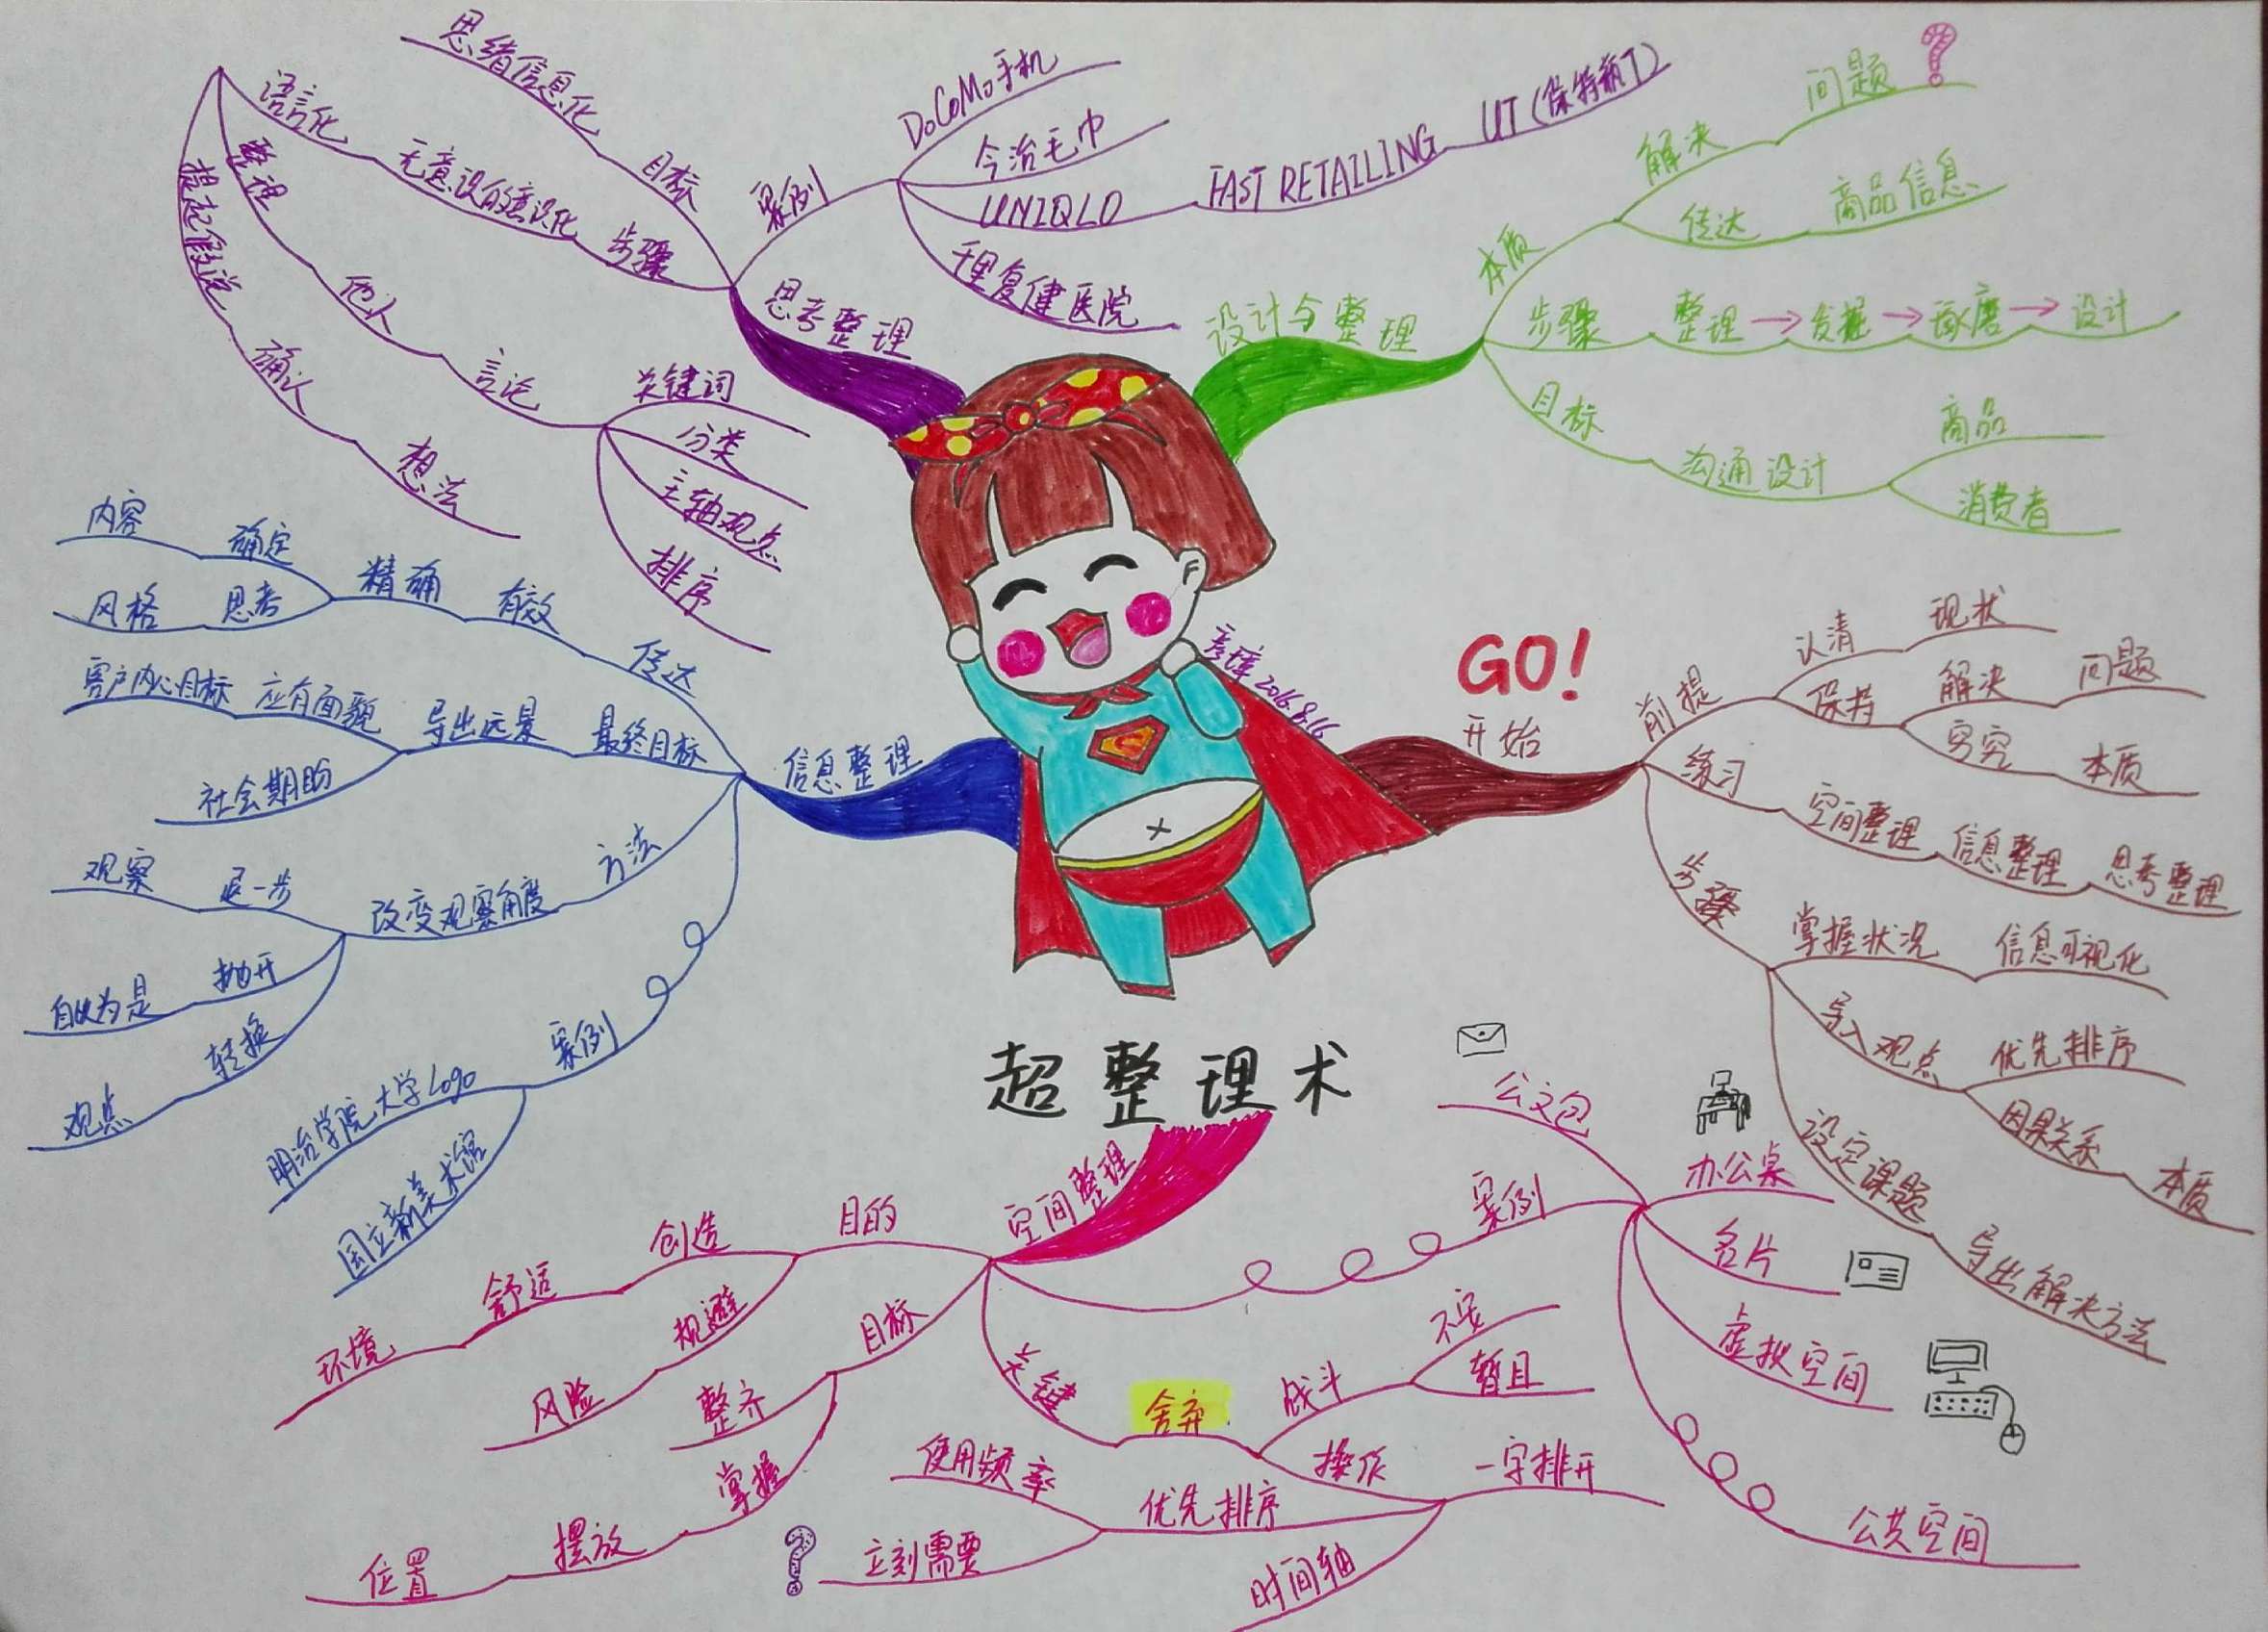 超整理术
GO!
开始
前提
认清
现状
保持
解决
问题
穷究
本质
练习
空间整理
信息整理
思考整理
步骤
掌握状况
信息可视化
导入观点
优先排序
因果关系
本质
设定课题
导出解决方法
空间整理
目的
创造
舒适
环境
规避
风险
目标
整齐
掌握
摆放
位置
关键
舍弃
战斗
不安
暂且
操作
一字排开
优先排序
使用频率
立刻需要
?
时间轴
案例
公文包
办公桌
名片
虚拟空间
公共空间
信息整理
传达
有效
精确
确定
内容
思考
风格
最终目标
导出远景
应有面貌
客户内心目标
社会期盼
方法
改变观察角度
退一步
观察
抛开
自以为是
转换
观点
案例
明治学院大学Logo
国立新美术馆
思考整理
目标
思绪信息化
步骤
无意识的意识化
语言化
整理
他人
言论
关键词
分类
主轴观点
排序
提起假说
确认
想法
案例
DoCoMo手机
今治毛巾
UNIQLO
FAST RETAILING
UT(保特瓶T)
千里复健医院
设计与整理
本质
解决
问题
?
传达
商品信息
步骤
整理→发掘→琢磨→设计
目标
沟通设计
商品
消费者
2016.8.16